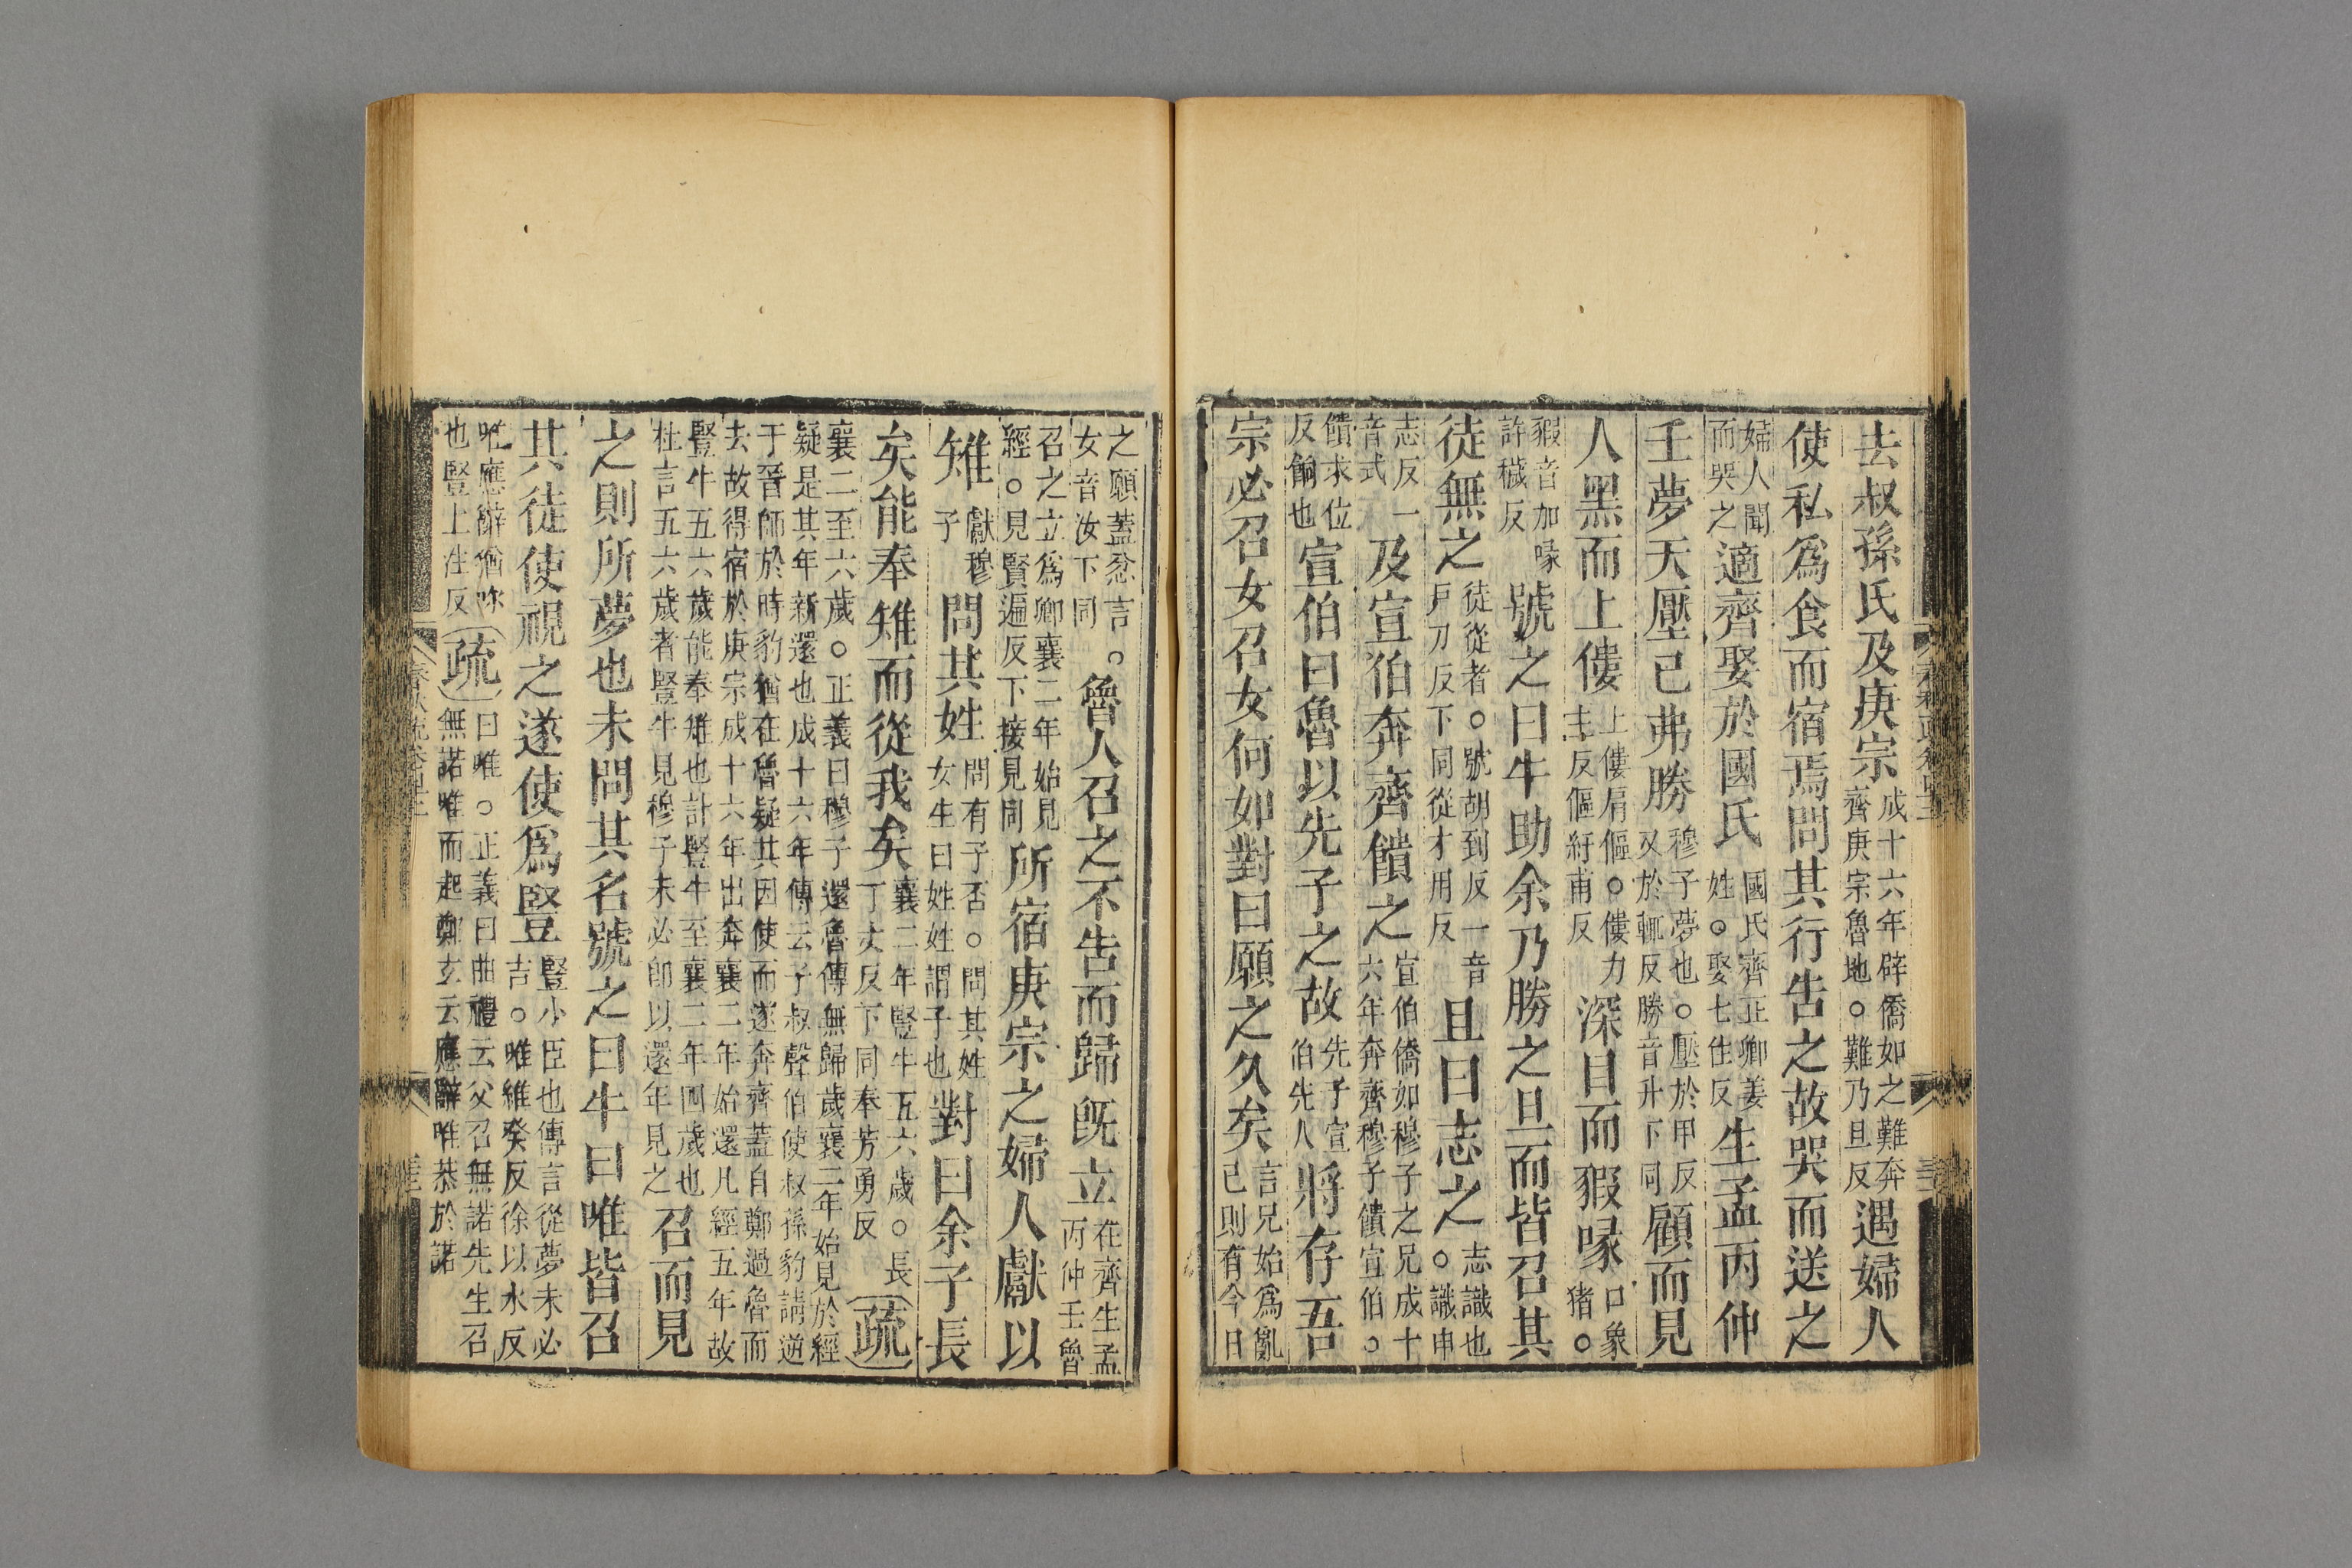 去叔孫氏及庚宗成十六年辟僑如之難奔齊庚宗魯地○難乃旦反遇婦人
使私爲食而宿焉問其行告之故哭而送之
婦人聞而哭之適齊娶於國氏國氏齊正卿姜姓○娶七住反生孟丙仲
壬夢天壓已弗勝穆子夢也○壓於甲反又於輒反勝音升下同顧而見
人黑而上僂上僂肩傴○僂力主反傴紆甫反深目而豭喙口象猪○
豭音加喙許穢反號之曰牛助余乃勝之旦而皆召其
徒無之徒從者○號胡到反一音戶刀反下同從才用反且曰志之志識也○識申
志反一音式及宣伯奔齊饋之宣伯僑如穆子之兄成十六年奔齊穆子饋宣伯○
饋求位反餉也宣伯曰魯以先子之故先子宣伯先人將存吾
宗必召女召女何如對曰願之久矣言兄始爲亂己則有今日
之願蓋忿言○女音汝下同魯人召之不告而歸旣立在齊生孟丙仲壬魯
召之立爲卿襄二年始見經○見賢遍反下接見同所宿庚宗之婦人獻以
雉獻穆子問其姓問有子否○問其姓女生曰姓姓謂子也對曰余子長
矣能奉雉而從我矣襄二年豎牛五六歲○長丁丈反下同奉芳勇反疏
襄二至六歲○正義曰穆子還魯傳無歸歲襄二年始見於經
疑是其年新還也成十六年傳云子叔聲伯使叔孫豹請逆
于晉師於時豹猶在魯疑其因使而遂奔齊蓋自鄭過魯而
去故得宿於庚宗成十六年出奔襄二年始還凡經五年故
豎牛五六歲能奉雉也計豎牛至襄二年四歲也
杜言五六歲者豎牛見穆子未必卽以還年見之召而見
之則所夢也未問其名號之曰牛曰唯皆召
其徒使視之遂使爲豎豎小臣也傳言從夢未必吉○唯維癸反徐以水反
唯應辭猶咻也豎上注反疏曰唯○正義曰曲禮云父召無諾先生召無諾唯而起鄭玄云應辭唯恭於諾